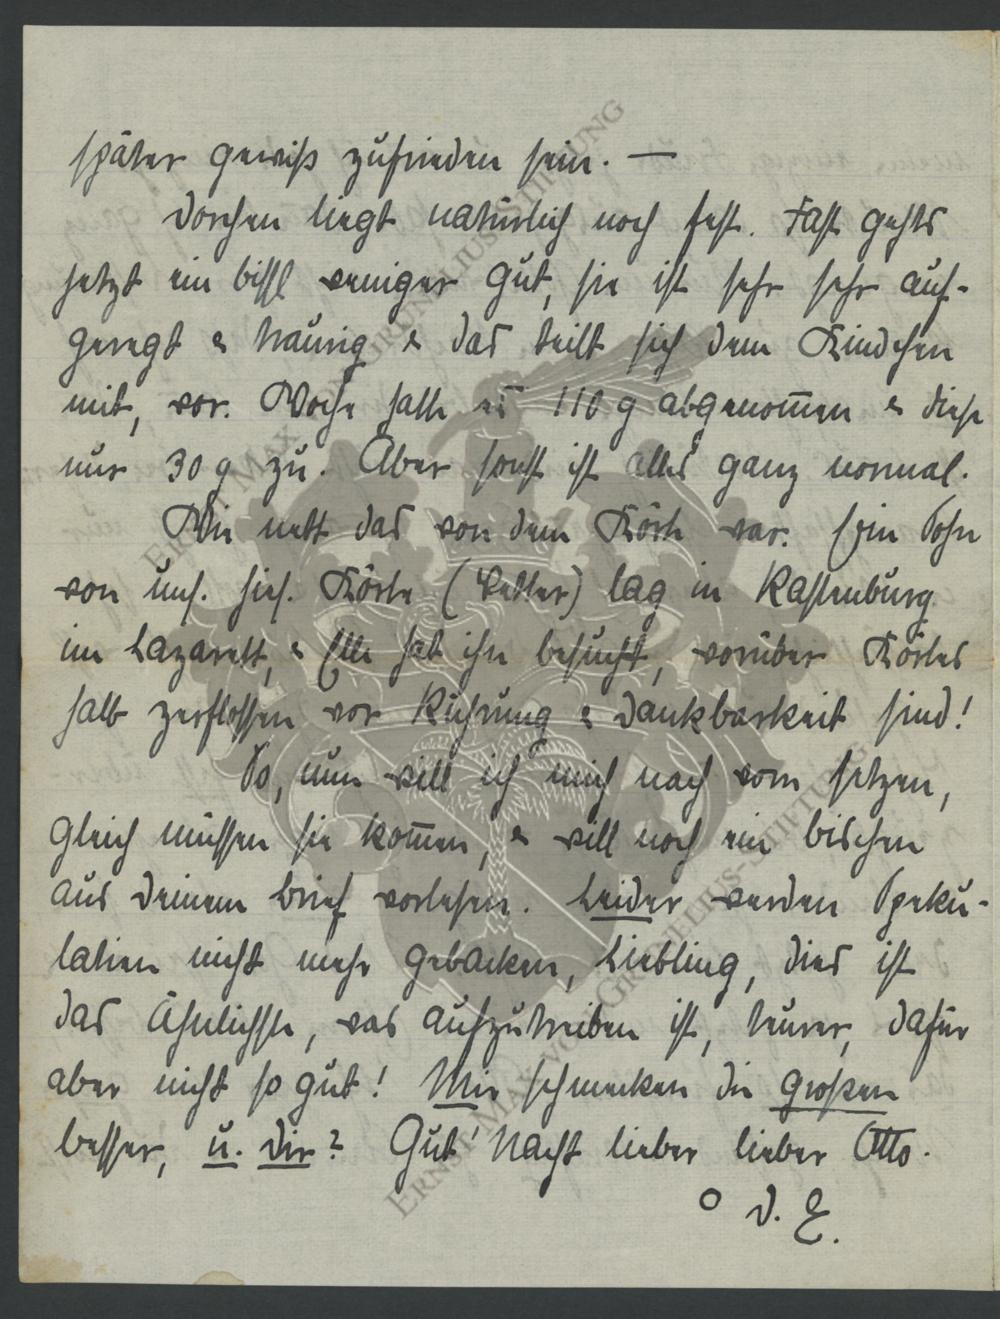 später gewiß zufrieden sein. —
Dorchen liegt natürlich noch fest. Fast gehts
jetzt ein bissl weniger gut, sie ist sehr sehr auf-
geregt & traurig & das teilt sich dem Kindchen
mit, vor. Woche hatte es 110 g abgenom̅en & diese
nur 30 g zu. Aber sonst ist alles ganz normal.
Wie nett das von dem Körte war. Ein Sohn
von uns. hies. Körte (Vetter) lag in Rastenburg
im Lazarett, & Elle hat ihn besucht, worüber Körtes
halb zerflossen vor Rührung & Dankbarkeit sind!
So, nun will ich mich nach vorn setzen,
gleich müssen sie kom̅en, & will noch ein bischen
aus Deinem Brief vorlesen. Leider werden Speku-
latien nicht mehr gebacken, Liebling, dies ist
das Ähnlichste, was aufzutreiben ist, teurer, dafür
aber nicht so gut! Mir schmecken die großen
besser, u. Dir? Gut' Nacht lieber lieber Otto.
O D. E.
ERNST MAX VON GRUNELIUS-STIFTUNG
ERNST MAX VON GRUNELIUS-STIFTUNG